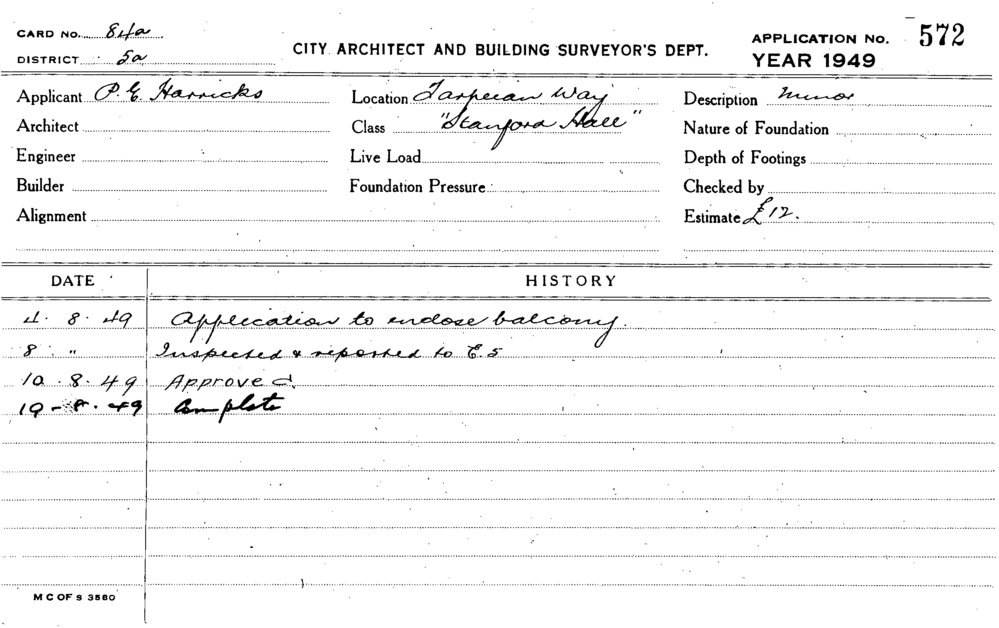 CARD NO. 84a
DISTRICT 5a
CITY ARCHITECT AND BUILDING SURVEYOR'S DEPT.
APPLICATION NO. 572
YEAR 1949
Applicant P. E. Harricks
Location Tarpeian Way
Description Minor
Architect
Class "Stanford Hall"
Nature of Foundation
Engineer
Live Load
Depth of Footings
Builder
Foundation Pressure
Checked by
Alignment
Estimate £12.
DATE HISTORY
4. 8. 49 Application to enclose balcony.
8 " Inspected & reported to E.5
10. 8. 49 Approved.
19-8.49 Complete
M C OF S 3880